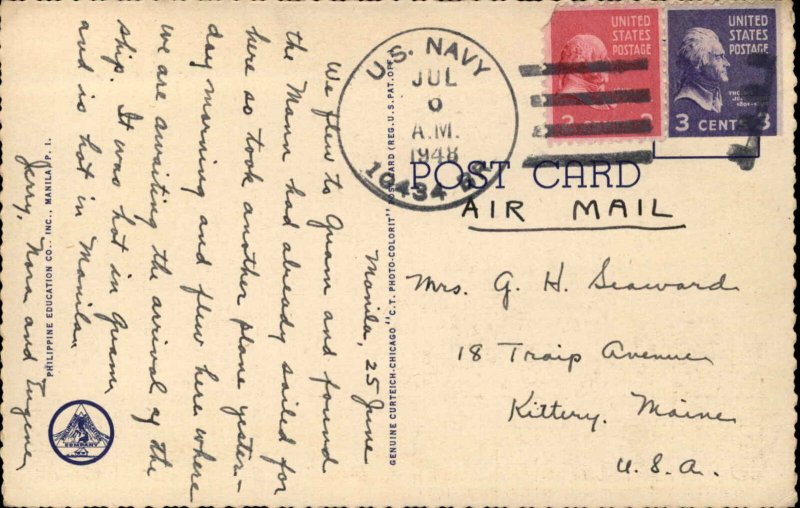 Manila, 25 June
We flew to Guam and found
the Mann had already sailed for
here so took another plane yester-
day morning and flew here where
we are awaiting the arrival of the
ship. It was hot in Guam
and is hot in Manila.
Jerry, Nora and Eugene
PHILIPPINE EDUCATION CO., INC., MANILA, P. I.
COMPANY
GENUINE CURTEICH-CHICAGO "C.T. PHOTO-COLORIT" POSTCARD (REG. U.S. PAT. OFF.
U.S. NAVY
JUL
6
A.M.
1948
10434
UNITED
STATES
POSTAGE
UNITED
STATES
POSTAGE
3 CENTS
POST CARD
AIR MAIL
Mrs. G. H. Seaward
18 Traip Avenue
Kittery, Maine
U.S.A.